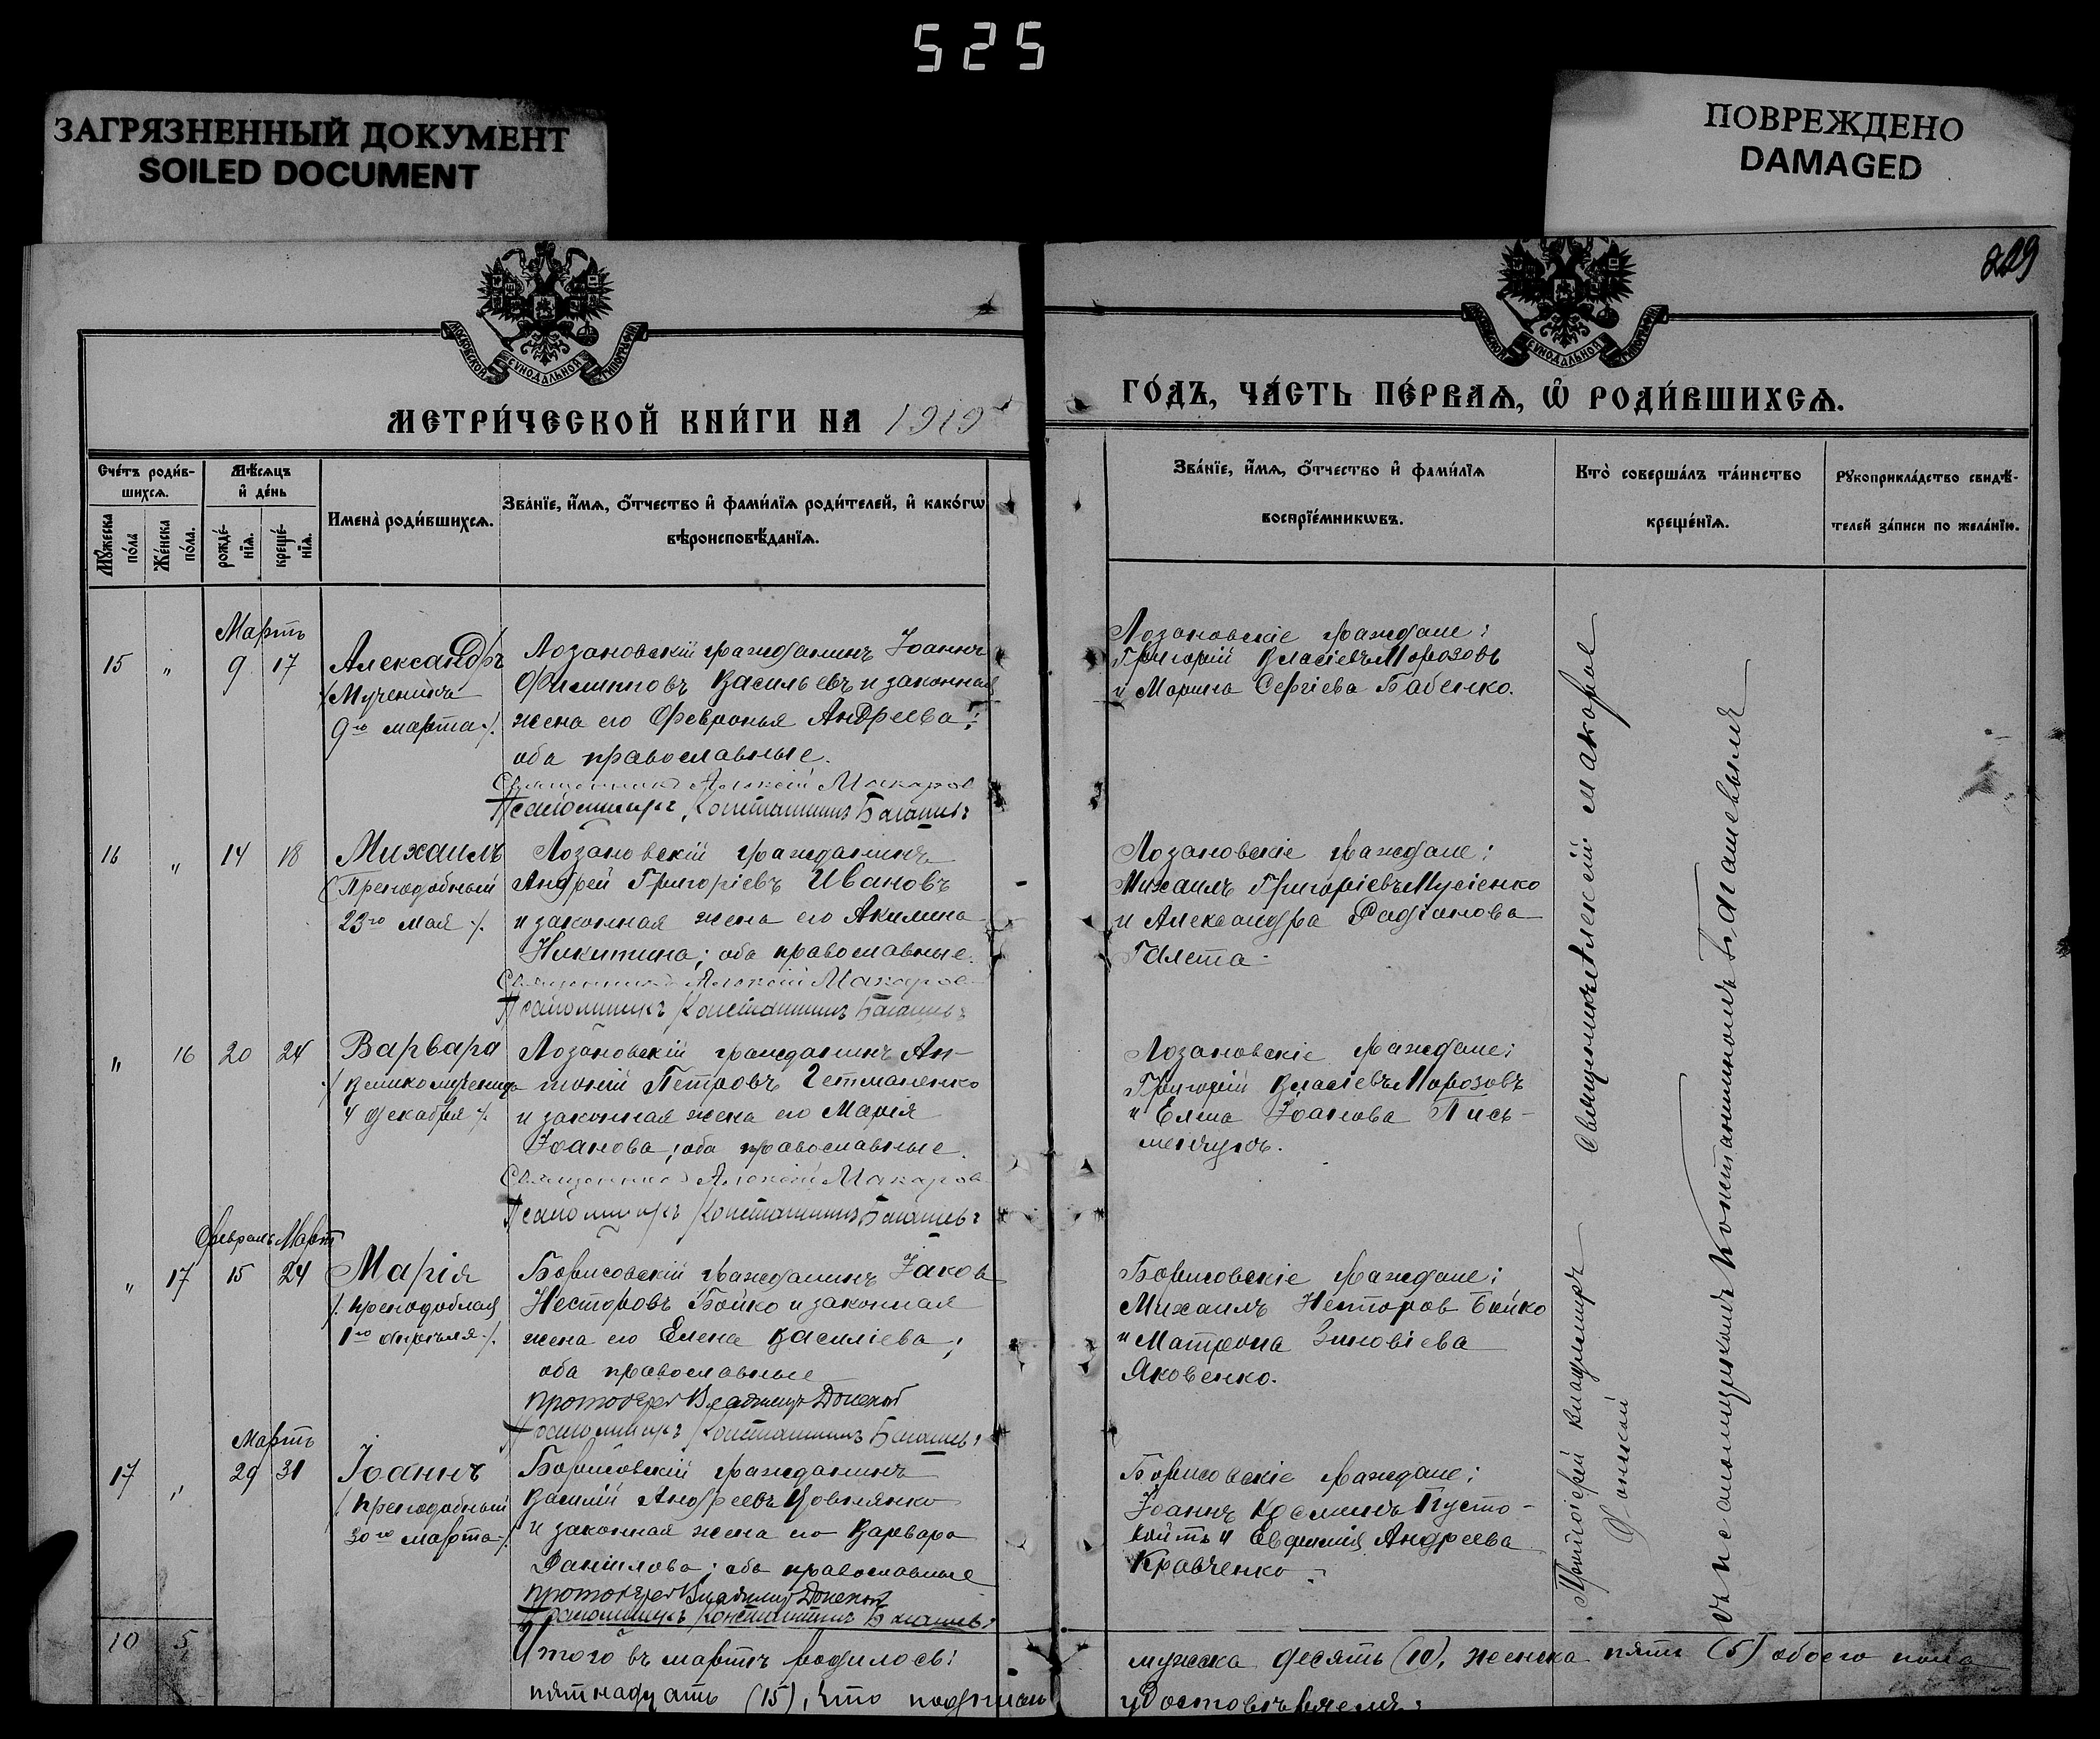 525
ЗАГРЯЗНЕННЫЙ ДОКУМЕНТ
SOILED DOCUMENT
ПОВРЕЖДЕНО
DAMAGED
229
МОСКОВСКОЙ СѴНОДАЛЬНОЙ ТИПОГРАФІИ
МОСКОВСКОЙ СѴНОДАЛЬНОЙ ТИПОГРАФІИ
МЕТРИ́ЧЕСКОЙ КНИ́ГИ НА 1919
ГО́ДЪ, ЧА́СТЬ ПЕ́РВАѦ, Ѡ҆ РОДИ́ВШИХСѦ.
Сче́тъ роди́в-
шихсѧ.
Мꙋ́жеска
по́ла
Же́нска
по́ла.
Мѣ́сѧцъ
и҆ де́нь
рожде́-
нїѧ.
креще́-
нїѧ.
Имена̀ роди́вшихсѧ.
Зва́нїе, и҆́мѧ, ѻ҆́тчество и҆ фами́лїѧ роди́телей, и҆ како́гѡ
вѣроисповѣ́данїѧ.
Зва́нїе, и҆́мѧ, ѻ҆́тчество и҆ фами́лїѧ
воспрїе́мникѡвъ.
Кто̀ соверша́лъ та́инство
креще́нїѧ.
Рꙋкоприкла́дство свидѣ́-
телей за́писи по жела́нїю.
Мартъ
15 " 9 17
Александръ
/Мученикъ
9го марта/.
Лозановскій гражданинъ Іоаннъ
Филиповъ Васильевъ и законная
жена его Февронья Андреева;
оба православные.
Священникъ Алексій Макаров
Псаломщикъ Константинъ Багашевъ
Лозановскіе граждане:
Григорій Власіевъ Морозовъ
и Марина Сергіева Бабенко.
16 " 14 18
Михаилъ
/Преподобный
23го мая/.
Лозановскій гражданинъ
Андрей Григоріевъ Ивановъ
и законная жена его Акилина
Никитина; оба православные.
Священникъ Алексій Макаров
Псаломщикъ Константинъ Багашевъ
Лозановскіе граждане:
Михаилъ Григоріевъ Мусіенко
и Александра Радіонова
Галета.
" 16 20 24
Варвара
/великомученица
4 декабря/.
Лозановскій гражданинъ Ан-
тоній Петровъ Гетманенко
и законная жена его Марія
Іоанова; оба православные.
Священникъ Алексій Макаров
Псаломщикъ Константинъ Багашевъ
Лозановскіе граждане:
Григорій Власіевъ Морозовъ
и Елена Іоанова Пись-
менчукъ.
Февраль Март
" 17 15 24
Марія
/преподобная
1го апрѣля/.
Борисовскій гражданинъ Іаков
Несторовъ Бойко и законная
жена его Елена Василіева;
оба православные
Протоіерей Владимиръ Донской
Псаломщикъ Константинъ Багашевъ
Борисовскіе граждане:
Михаилъ Несторов Бойко
и Матрона Зиновіева
Яковенко.
Мартъ
17 " 29 31
Іоаннъ
/преподобный
30го марта/.
Борисовскій гражданинъ
Василій Андреевъ
и законная жена его Варвара
Даніилова; оба православные
Протоіерей Владимиръ Донской
Псаломщикъ Константинъ Багашевъ
Борисовскіе граждане:
Іоаннъ Косминъ Пусто-
войтъ и Евфимія Андреева
Кравченко.
Священникъ Алексій Макаров
Протоіерей Владимиръ
Донской
съ псаломщикомъ Константиномъ Багашевымъ
10 5
Итого въ мартѣ родилось:
мужска десять (10), женска пять (5) обоего пола
пятнадцать (15), что подписом
удостовѣряемъ: